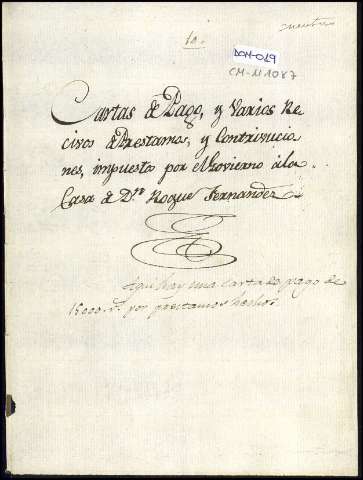 cuentas
10.
DON-019
CM-11087
Cartas de Pago, y Varios Re-
civos de Prestamos, y Contrivucio-
nes, impuesto por el Govierno à la
Casa de Dn. Roque Fernandez
Aqui hay una carta de pago de
15000 rs. por prestamos hechos